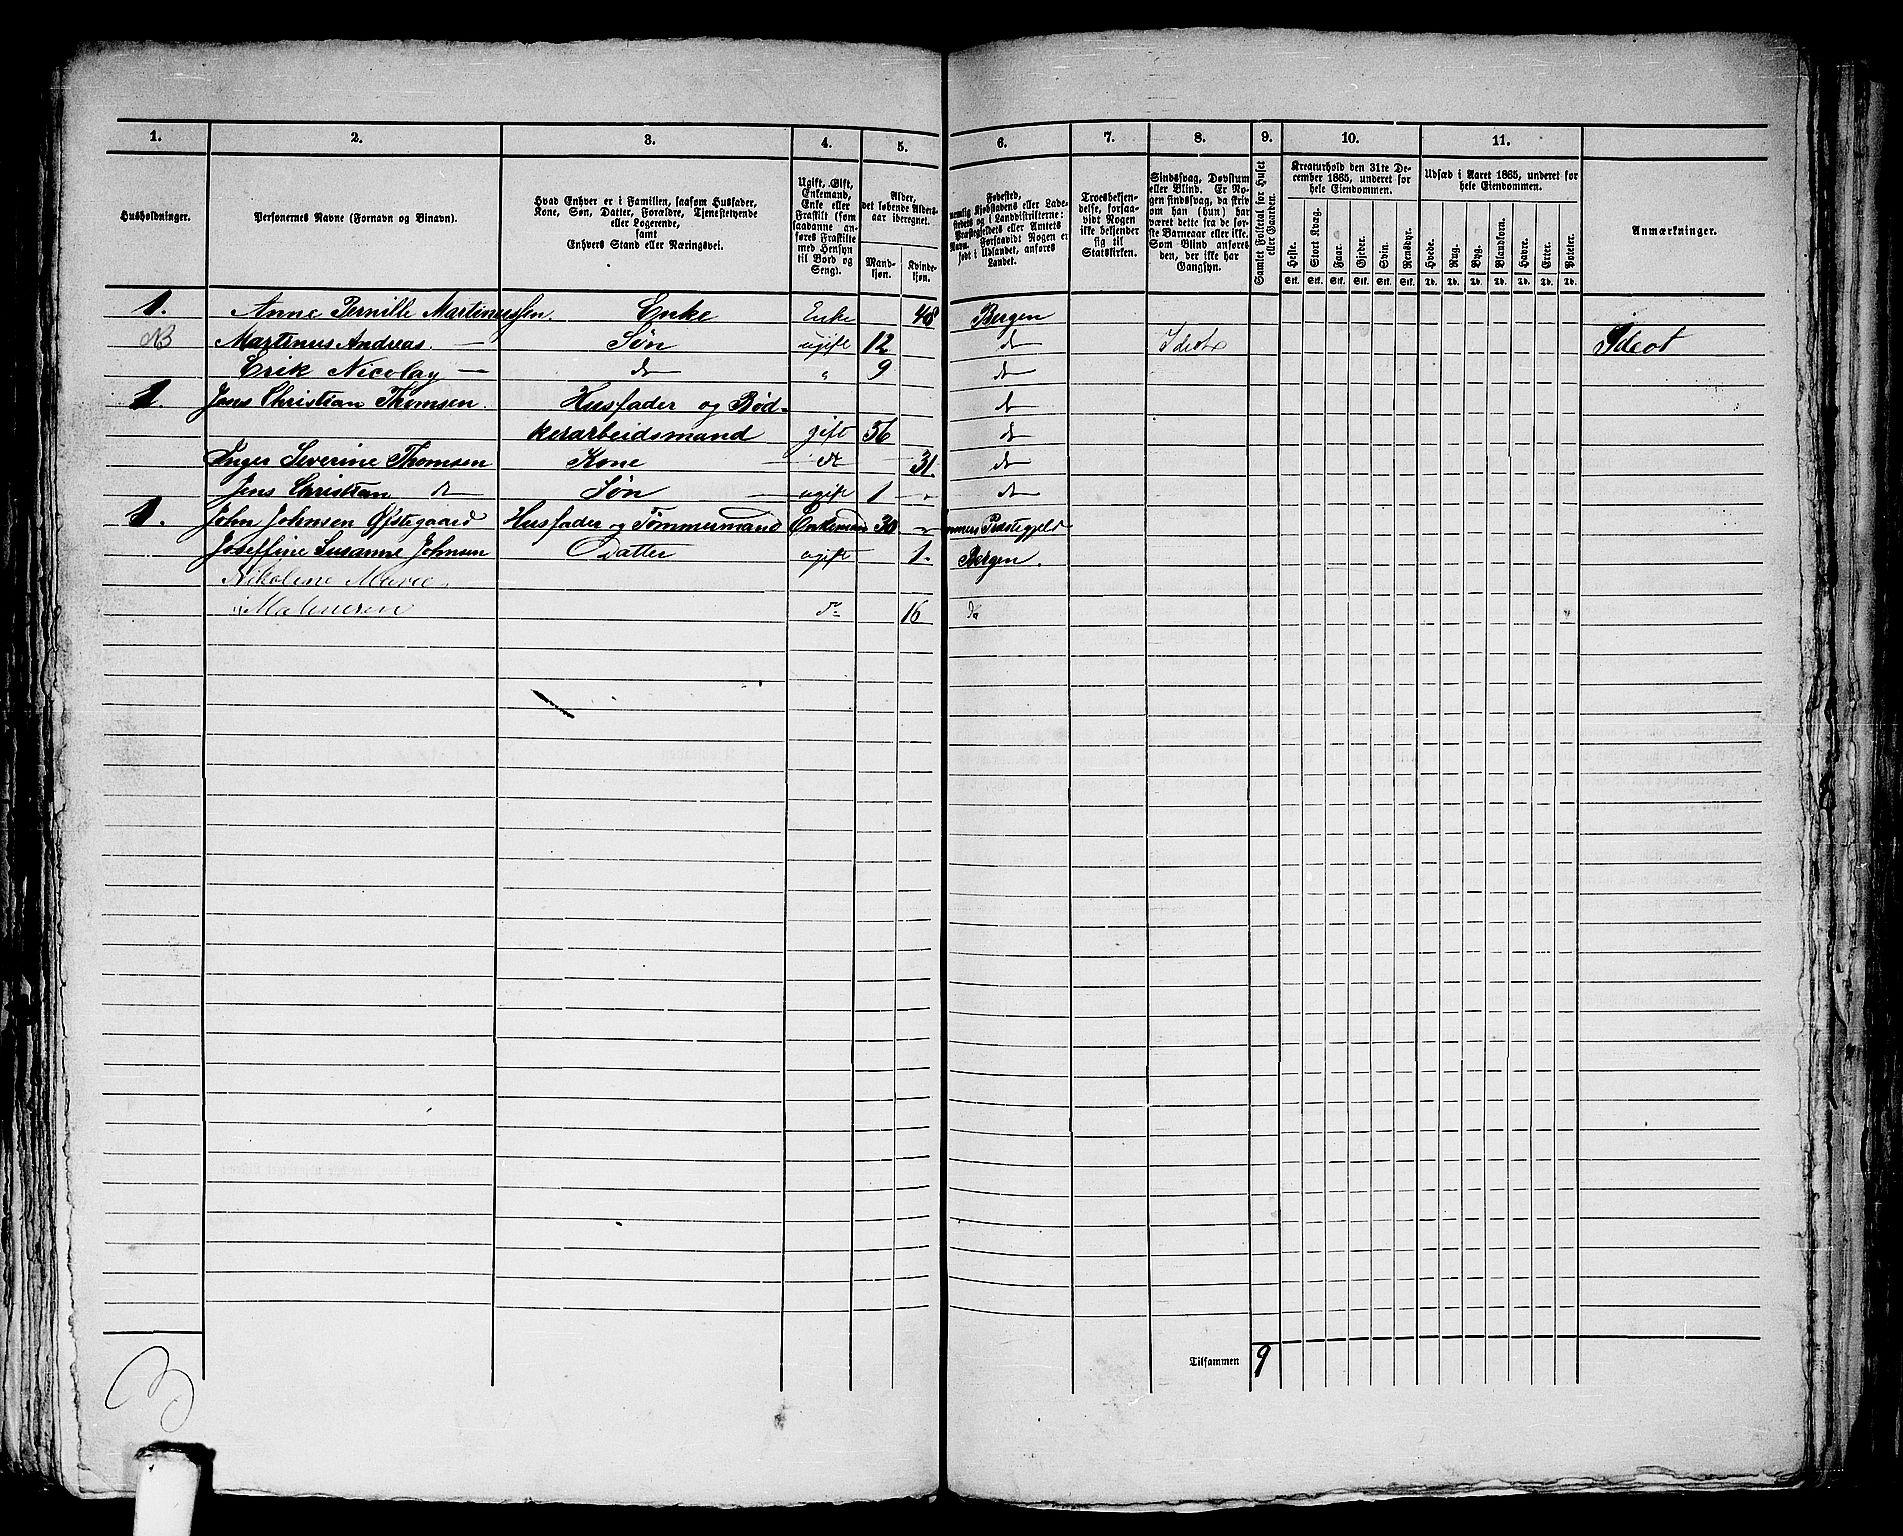 1. 2. 3. 4. 5. 6. 7. 8. 9. 10. 11.
Husholdninger.
Personernes Navne (Fornavn og Binavn).
Hvad Enhver er i Familien, saasom Husfader,
Kone, Søn, Datter, Forældre, Tjenestetyende
eller Logerende,
samt
Enhvers Stand eller Næringsvei.
Ugift, Gift,
Enkemand,
Enke eller
Fraskilt (som
saadanne an-
føres Fraskilte
med Hensyn
til Bord og
Seng).
Alder,
det løbende Alders-
aar iberegnet.
Mand-
kjøn.
Kvinde-
kjøn.
Fødested,
nemlig Kjøbstadens eller Lade-
stedets og i Landdistrikterne:
Præstegjeldets eller Amtets
Navn. Forsaavidt Nogen er
født i Udlandet, anføres
Landet.
Troesbekjen-
delse, forsaa-
vidt Nogen
ikke bekjender
sig til
Statskirken.
Sindssvag, Døvstum
eller Blind. Er No-
gen sindssvag, da skriv
om han (hun) har
været dette fra de før-
ste Barneaar eller ikke.
Som Blind anføres
den, der ikke har
Gangsyn.
Samlet Folketal for Huset
eller Gaarden.
Kreaturhold den 31te De-
cember 1865, underet for
hele Eiendommen.
Heste. Stort Kvæg. Faar. Gjeder. Svin. Rensdyr.
Stk. Stk. Stk. Stk. Stk. Stk.
Udsæd i Aaret 1865, underet for
hele Eiendommen.
Hvede. Rug. Byg. Blandkorn. Havre. Erter. Poteter.
Td. Td. Td. Td. Td. Td. Td.
Anmærkninger.
1. Anne Pernille Martinussen. Enke Enke 48 Bergen
Martinus Andreas. — Søn ugift 12 do Idiot Ideot
Erik Nicolay — do " 9 do
1. Jens Christian Thomsen. Husfader og Bød- do
kerarbeidsmand gift 56 do
Inger Severine Thomsen Kone do 31. do
Jens Christian do Søn ugift 1 do
1. John Johnsen Øfstegaard Husfader og Tømmermand Enkemand 30 Præstegjeld
Joseffine Susanne Johnsen Datter ugift 1. Bergen.
Nikoline Marie
do 16 do
Tilsammen 9